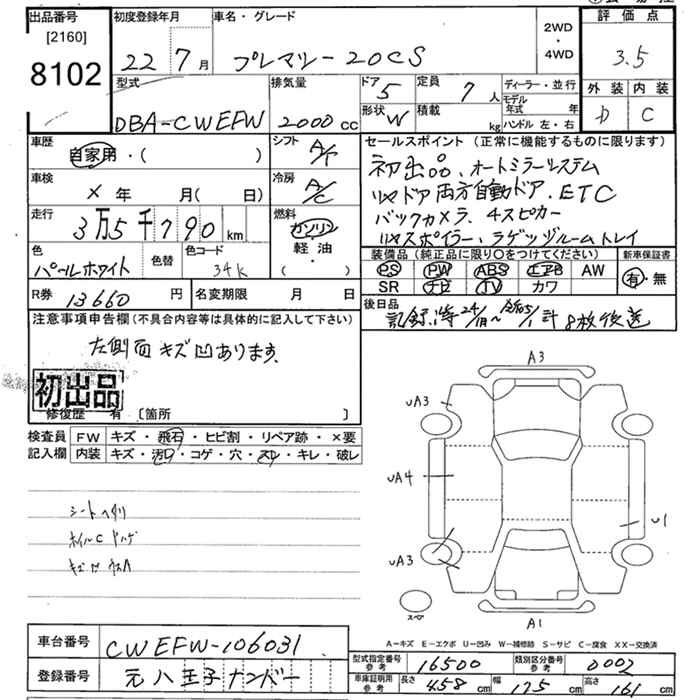 出品番号 初度登録年月 車名・グレード 2WD・4WD 評価点
[2160]
8102 22 7月 プレマシー 20CS 3.5
型式 排気量 ドア 5 定員 7人 ディーラー・並行 外装 内装
DBA-CWEFW 2000cc 形状 W 積載 kg モデル年式 年 D C
ハンドル 左・右
車歴 シフト セールスポイント(正常に機能するものに限ります)
自家用・( ) A/T 初出品、オートミラーシステム
車検 ×年 月(日) 冷房 A/C リヤドア両方自動ドア、ETC
走行 3万5千790km 燃料 バックカメラ、4スピカー
ガソリン リヤスポイラー、ラゲッジルームトレイ
軽油・( )
色 色替 色コード 装備品(純正品に限り○をつけてください) 新車保証書
パールホワイト 34K PS PW ABS エアB AW 有・無
SR ナビ TV カワ
R券 13660円 名変期限 月 日 後日品
注意事項申告欄(不具合内容等は具体的に記入して下さい) 計8枚後送
左側面キズ凹あります。
初出品
修復歴 有 〔箇所 〕
検査員記入欄 FW キズ・飛石・ヒビ割・リペア跡・×要
内装 キズ・汚れ・コゲ・穴・スレ・キレ・破レ
シートヘタリ
A3
UA3
UA4
U1
UA3
スペ
A1
A-キズ E-エクボ U-凹み W-補修跡 S-サビ C-腐食 XX-交換済
車台番号 CWEFW-106031
型式指定番号参考 16500 類別区分番号参考 0002
登録番号 元八王子ナンバー
車庫証明用参考 長さ 458cm 幅 175cm 高さ 161cm